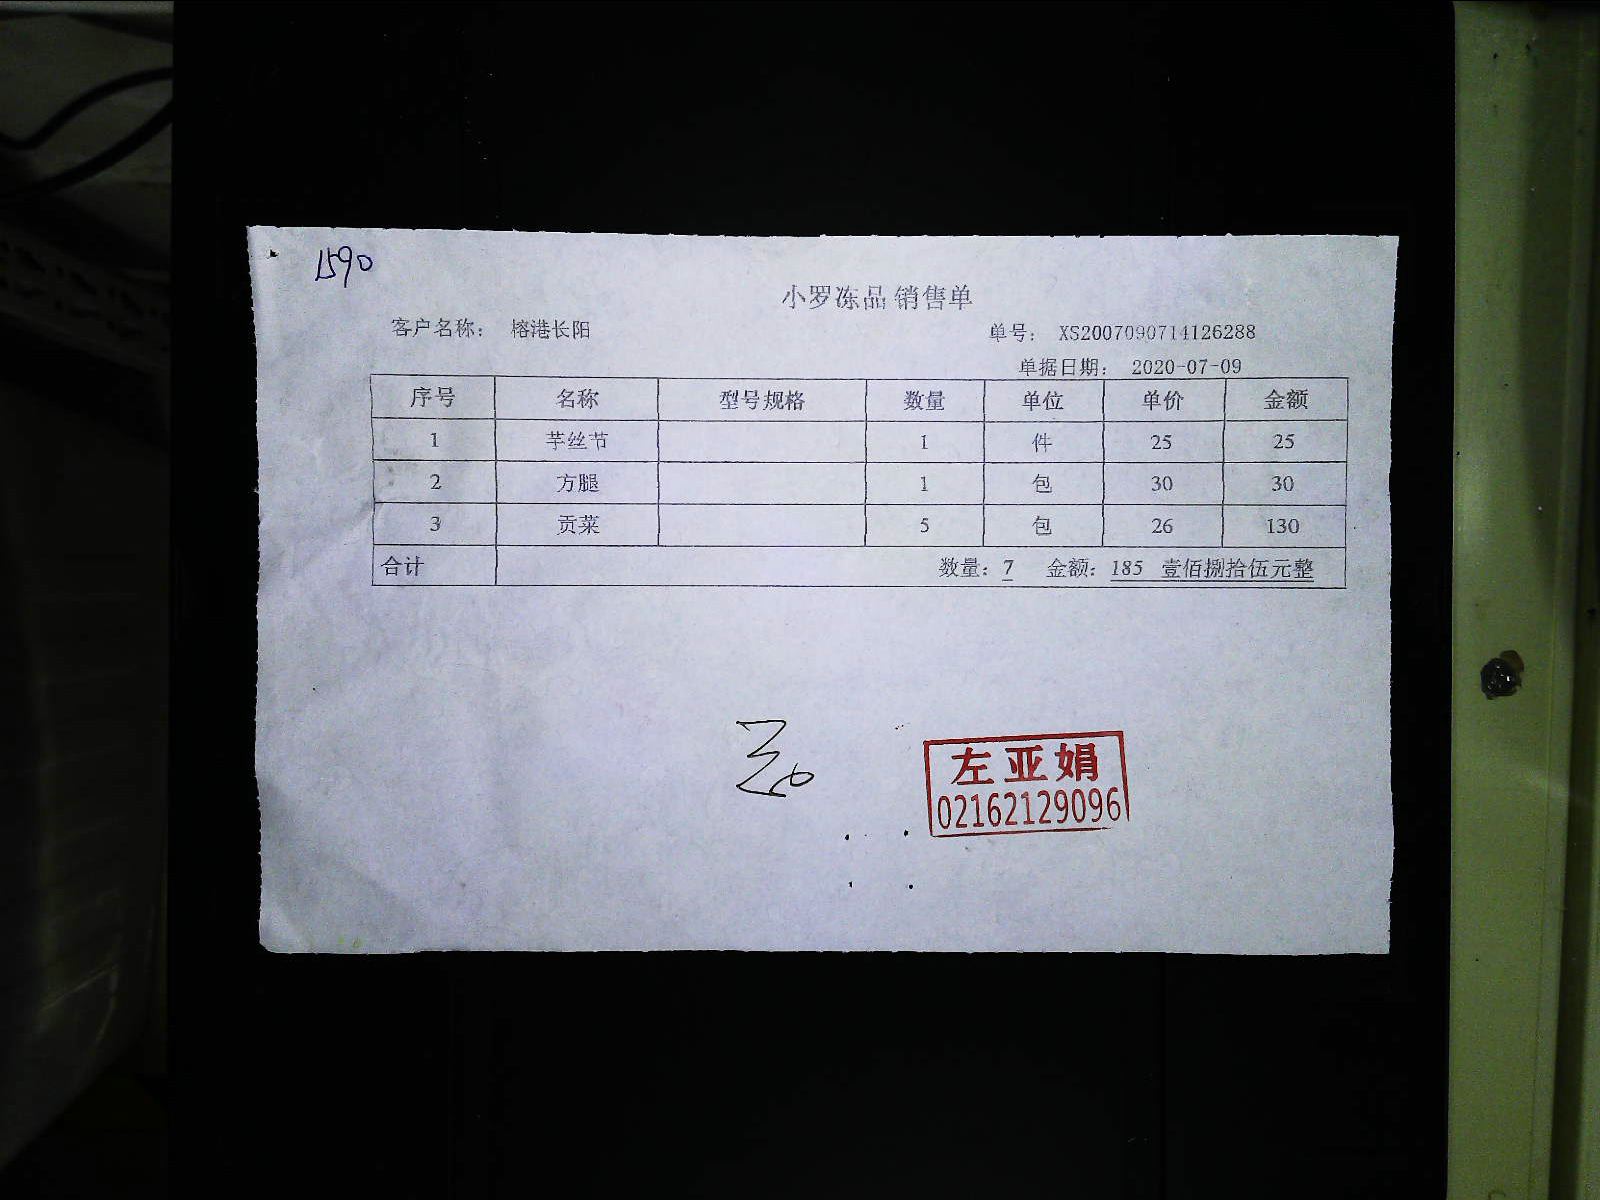 1590
小罗冻品 销售单
客户名称： 榕港长阳 单号： XS2007090714126288
单据日期： 2020-07-09
序号 名称 型号规格 数量 单位 单价 金额
1 芋丝节 1 件 25 25
2 方腿 1 包 30 30
3 贡菜 5 包 26 130
合计 数量：7 金额：185 壹佰捌拾伍元整
左亚娟
02162129096